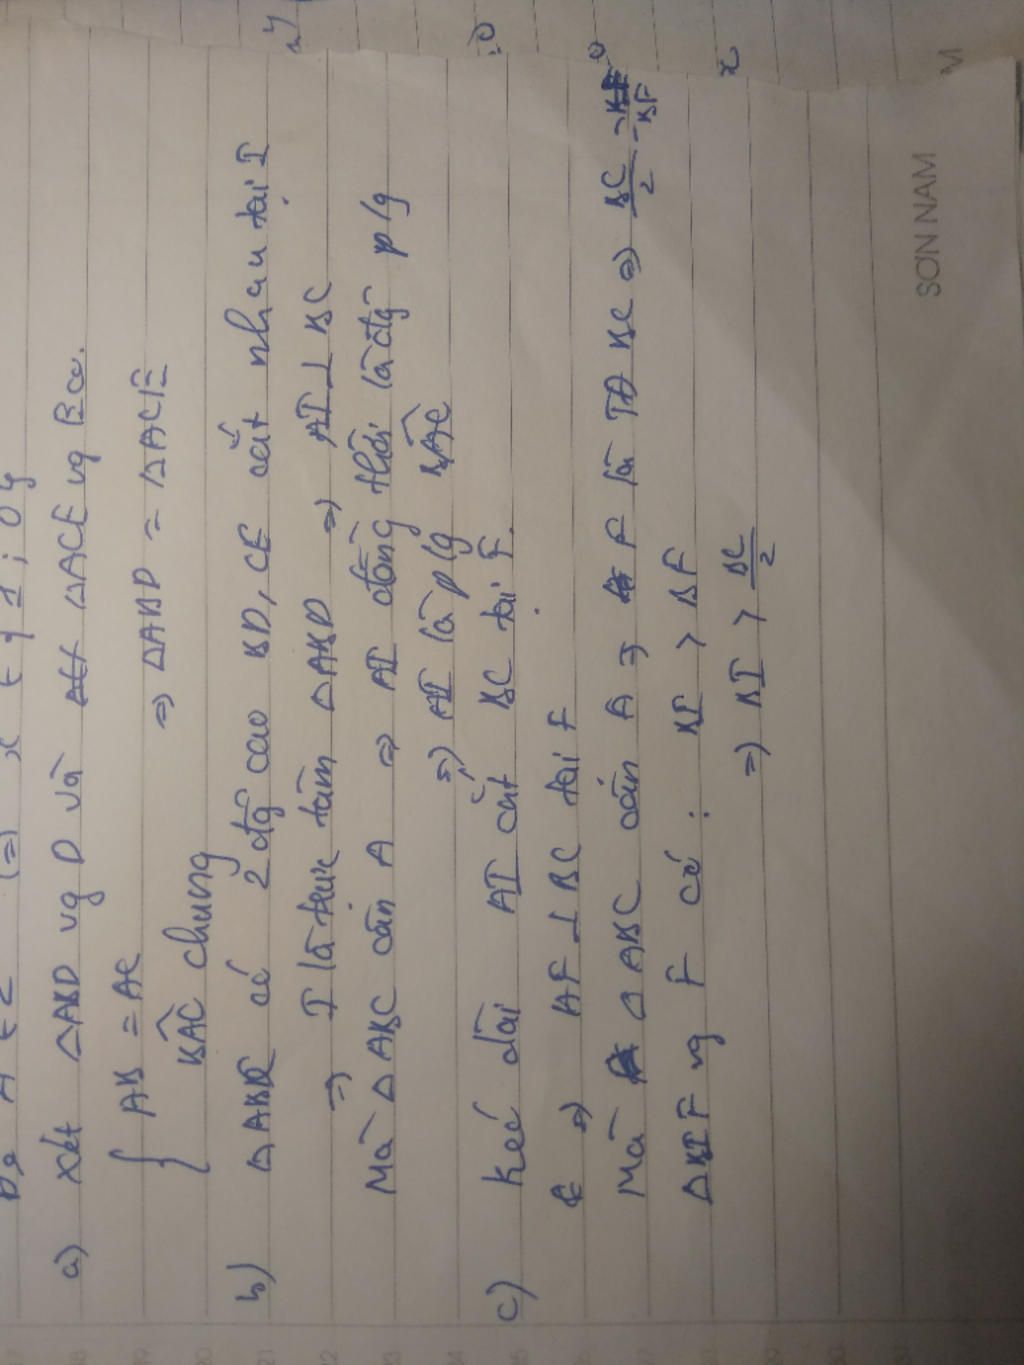 a) Xét ΔABD vg D và ΔACE vg E có.
{ AB = AC
BAC chung ⇒ ΔABD = ΔACE
b) ΔABC có 2 đg cao BD, CE cắt nhau tại I
⇒ I là trực tâm ΔABD ⇒ AI ⊥ BC
Mà ΔABC cân A ⇒ AI đồng thời là đg p/g
⇒) AI là p/g BAC
c) Kéo dài AI cắt BC tại F.
⇒) AF ⊥ BC tại F
Mà ΔABC cân A ⇒ F là TĐ BC ⇒) BC/2 = BF
ΔBIF vg F có : BI > BF
⇒) BI > BC/2
SƠN NAM